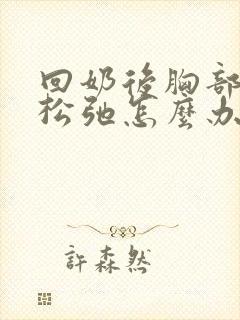 回奶後胸部
松弛怎麼办
許森然